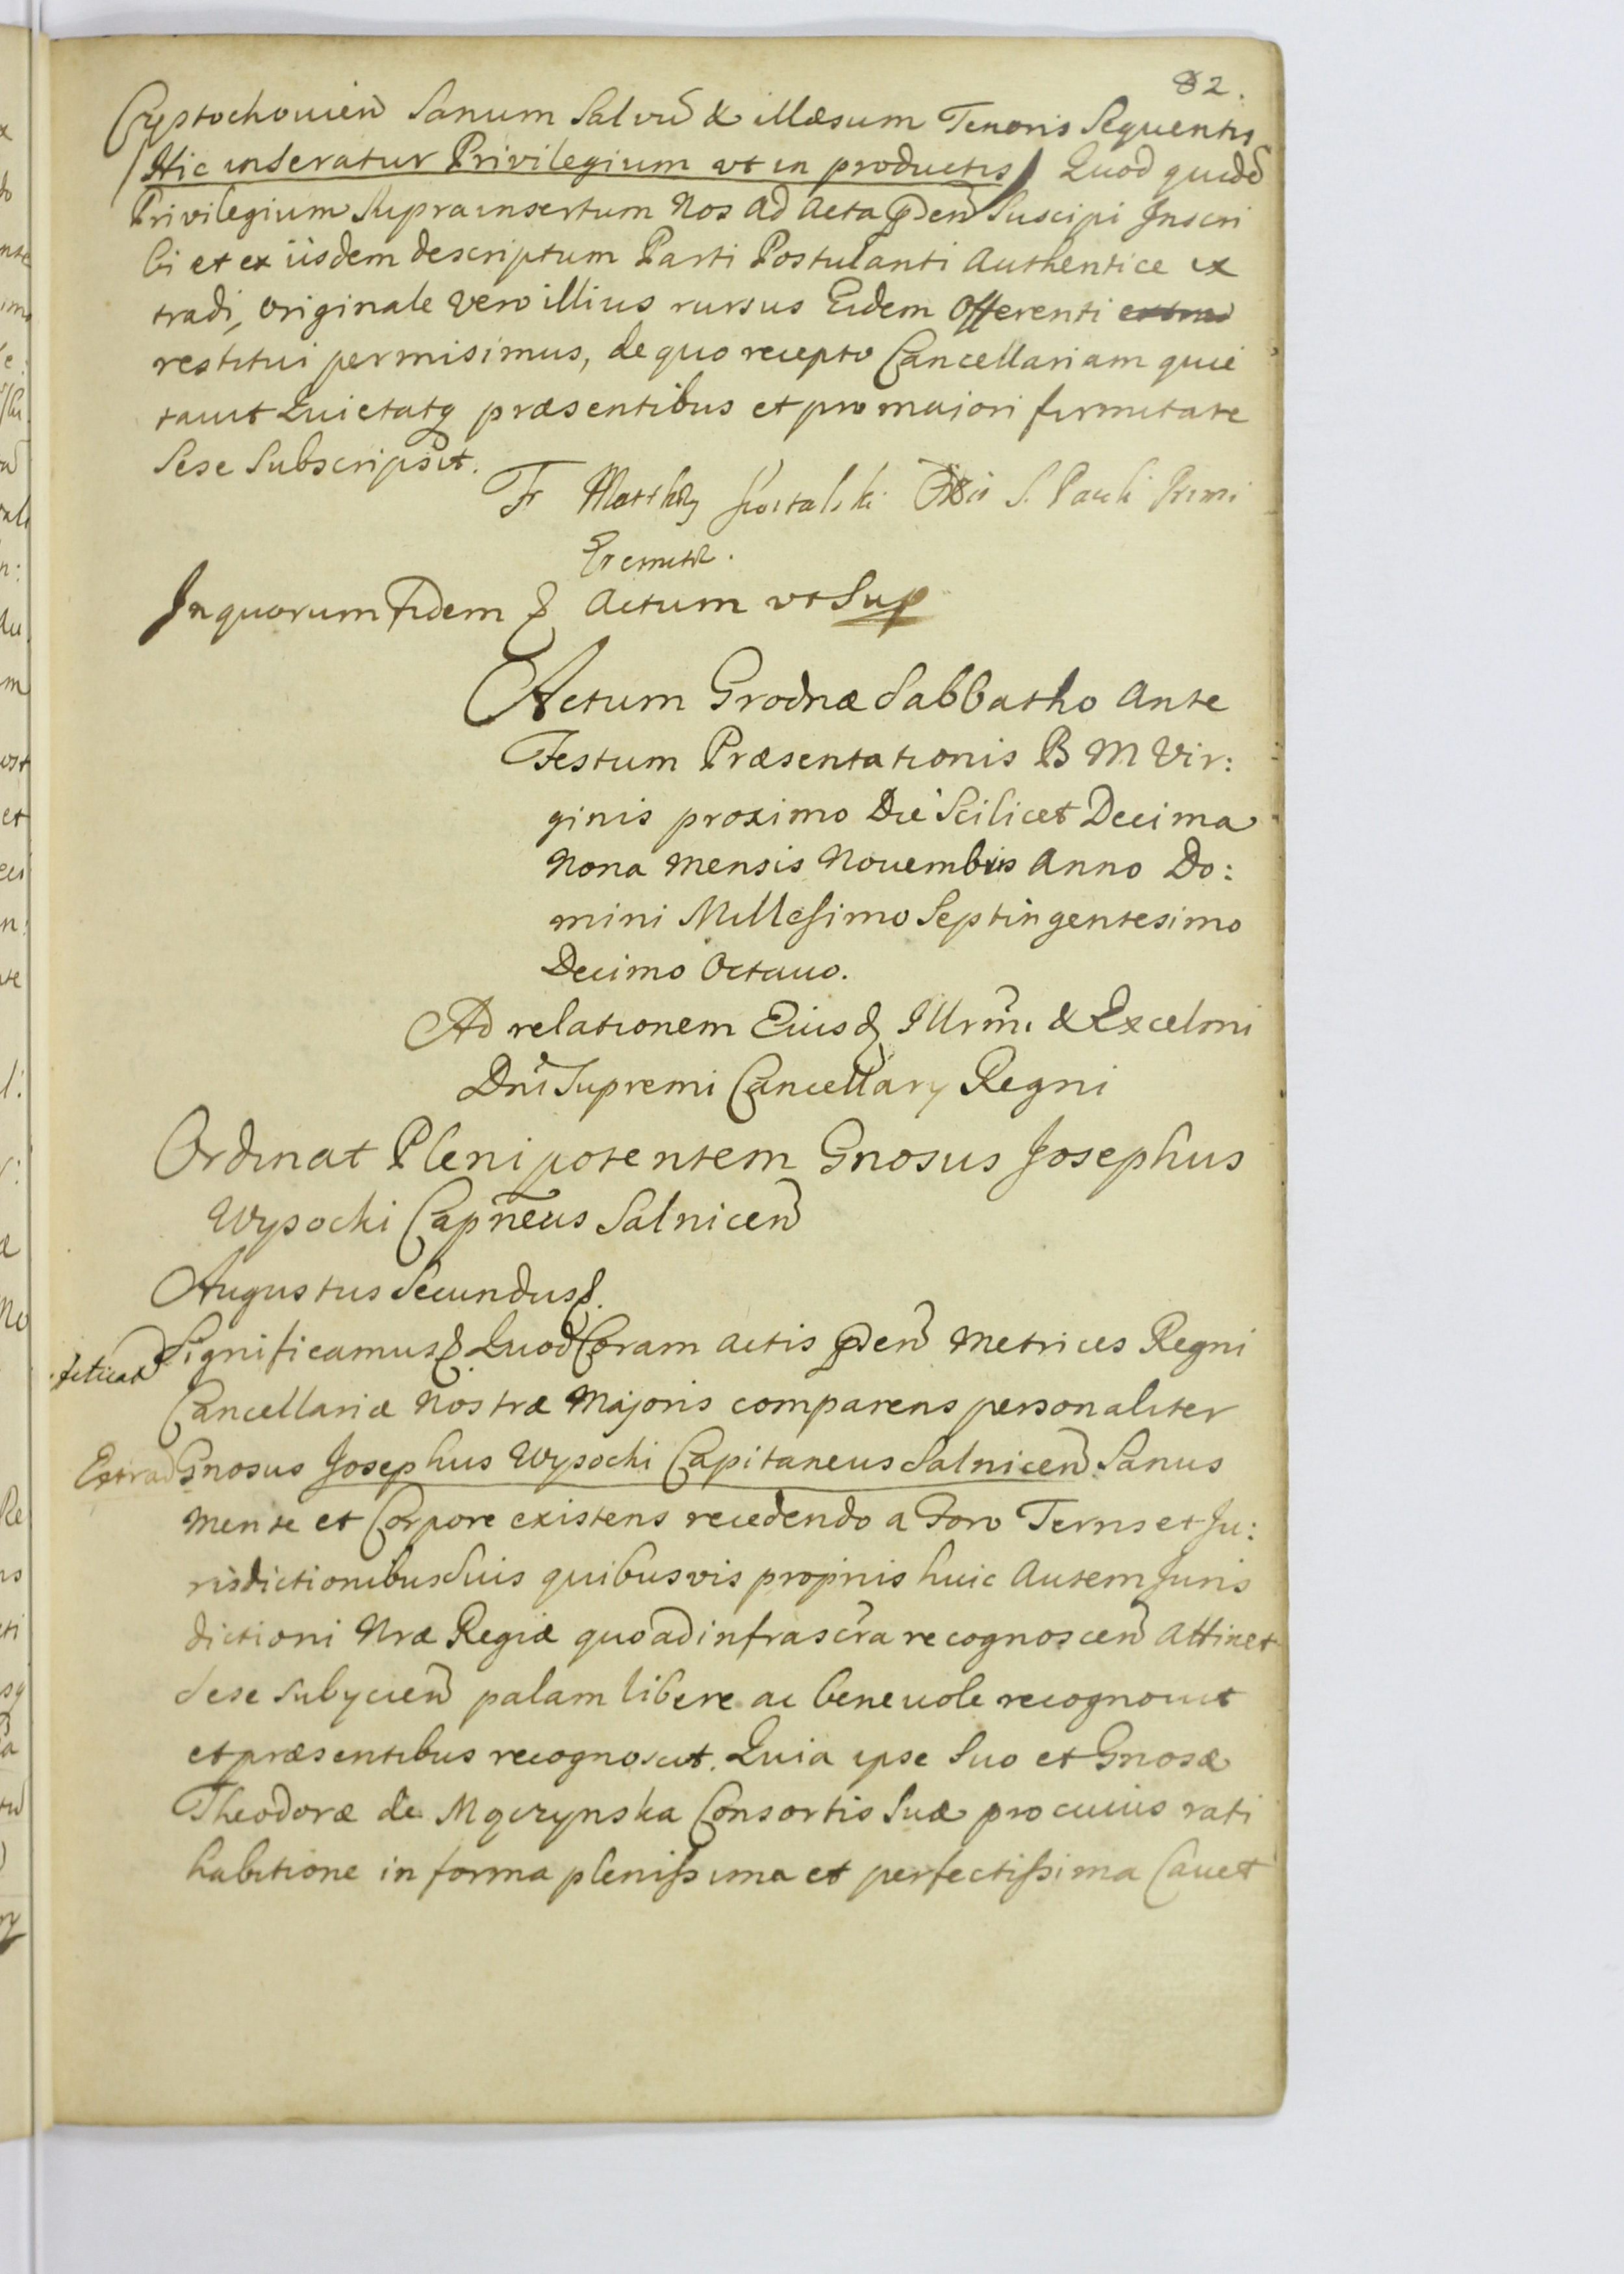 82.
Cęstochouień Sanum Salvū & illæsum Tenoris Sequentis
/Hic inseratur Privilegium ut in productis/ Quod quidē
Privilegium Suprainsertum Nos ad Acta Suscipi Inscri
bi et ex iisdem descriptum Parti Postulanti Authentice ex
tradi, Originale vero illius rursus Eidem Offerenti
restitui permisimus, de quo recepto Cancellariam quie
tauit Quietatq præsentibus et pro maiori firmitate
Sese Subscripsit.
Fr S. Pauli Primi
Eremitæ.
In quorum Fidem & Actum ut Sup
Actum Grodnæ Sabbatho Ante
Festum Præsentationis B M Vir:
ginis proximo Die Scilicet Decima
Nona Mensis Nouembris Anno Do:
mini Millesimo Septingentesimo
Decimo Octauo.
Ad relationem Eiusd Illrmi & Excelmi
Dni Supremi Cancellarij Regni
Ordinat Plenipotentem Gnosus Josephus
Wysocki Capneus Salnicen
Augustus Secundus &.
Significamus & Quod Coram actis pden Metrices Regni
Cancellariæ Nostræ Majoris comparens personaliter
Extrad Gnosus Josephus Wysocki Capitaneus Salnicen Sanus
Mente et Corpore existens recedendo a Foro Terris et Ju:
risdictionibus Suis quibusvis proprijs huic Autem Juris
dictioni Nræ Regiæ quoad infrascra recognoscen Attinet
Sese Subijcien palam libere ac beneuole recognouit
et præsentibus recognoscit. Quia ipse Suo et Gnosæ
Theodoræ de Mączynska Consortis Suæ pro cuius rati
habitione in forma plenissima et perfectissima Cauet